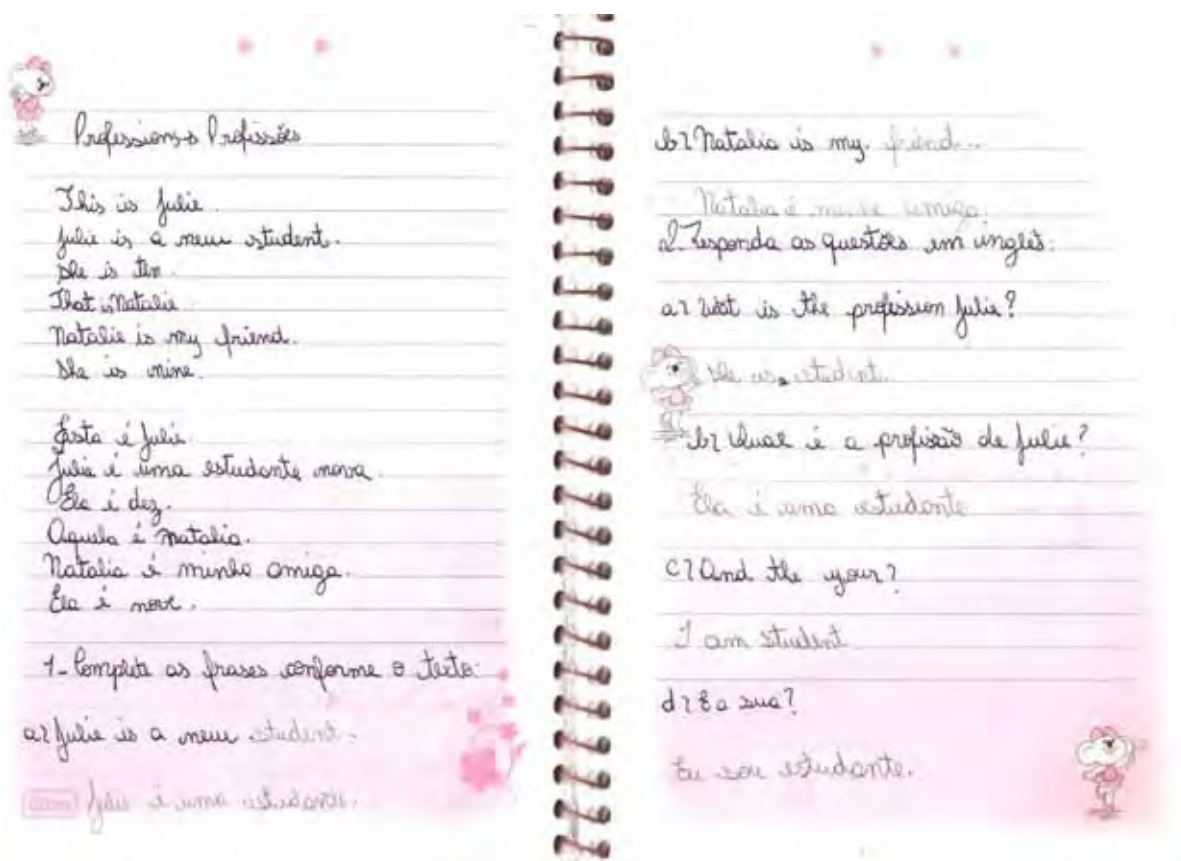 Professions → Profissões
This is Julie.
Julie is a new student.
She is ten.
That is Natalie.
Natalie is my friend.
She is nine.
Esta é Julie.
Julie é uma estudante nova.
Ela é dez.
Aquela é Natalia.
Natalia é minha amiga.
Ela é nove.
1- Complete as frases conforme o texto:
a) Julie is a new student.
Julie é uma estudante.
b) Natalia is my friend.
Natalia é minha amiga.
2- Responda as questões em inglês:
a) is the profession Julie?
She is a student.
b) Qual é a profissão de Julie?
Ela é uma estudante
c) And the your?
I am student
d) E a sua?
Eu sou estudante.